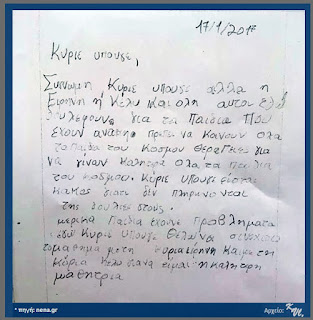 17/1/2017
Κύριε υπουσε,
Συνωμη Κύριε υπουσε αλλα η
Ειρηνη η Κελυ και ολη αυτοι εδώ
δουλεβουνε για τα παιδια που
έχουν αναγκη πρεπει να κανουν ολα
τα παιδια του κοσμου θεραπιες για
να γίνουν καλητερα ολα τα παιδια
του κοσμου. Κύριε υπουσε είσαι
κακος διατι δεν πληρωνοντε
της δουλιες τους.
μερικα παιδια εχουν προβληματα
εδω Κύριε υπουσε θελω να συνεχισω
το μαθημα με τη κυρια Ειρηνη και με τη
κυρια Κελυ για να ειμαι η καλητερη
μαθητρια
* πηγή: nena.gr
Αρχείο: